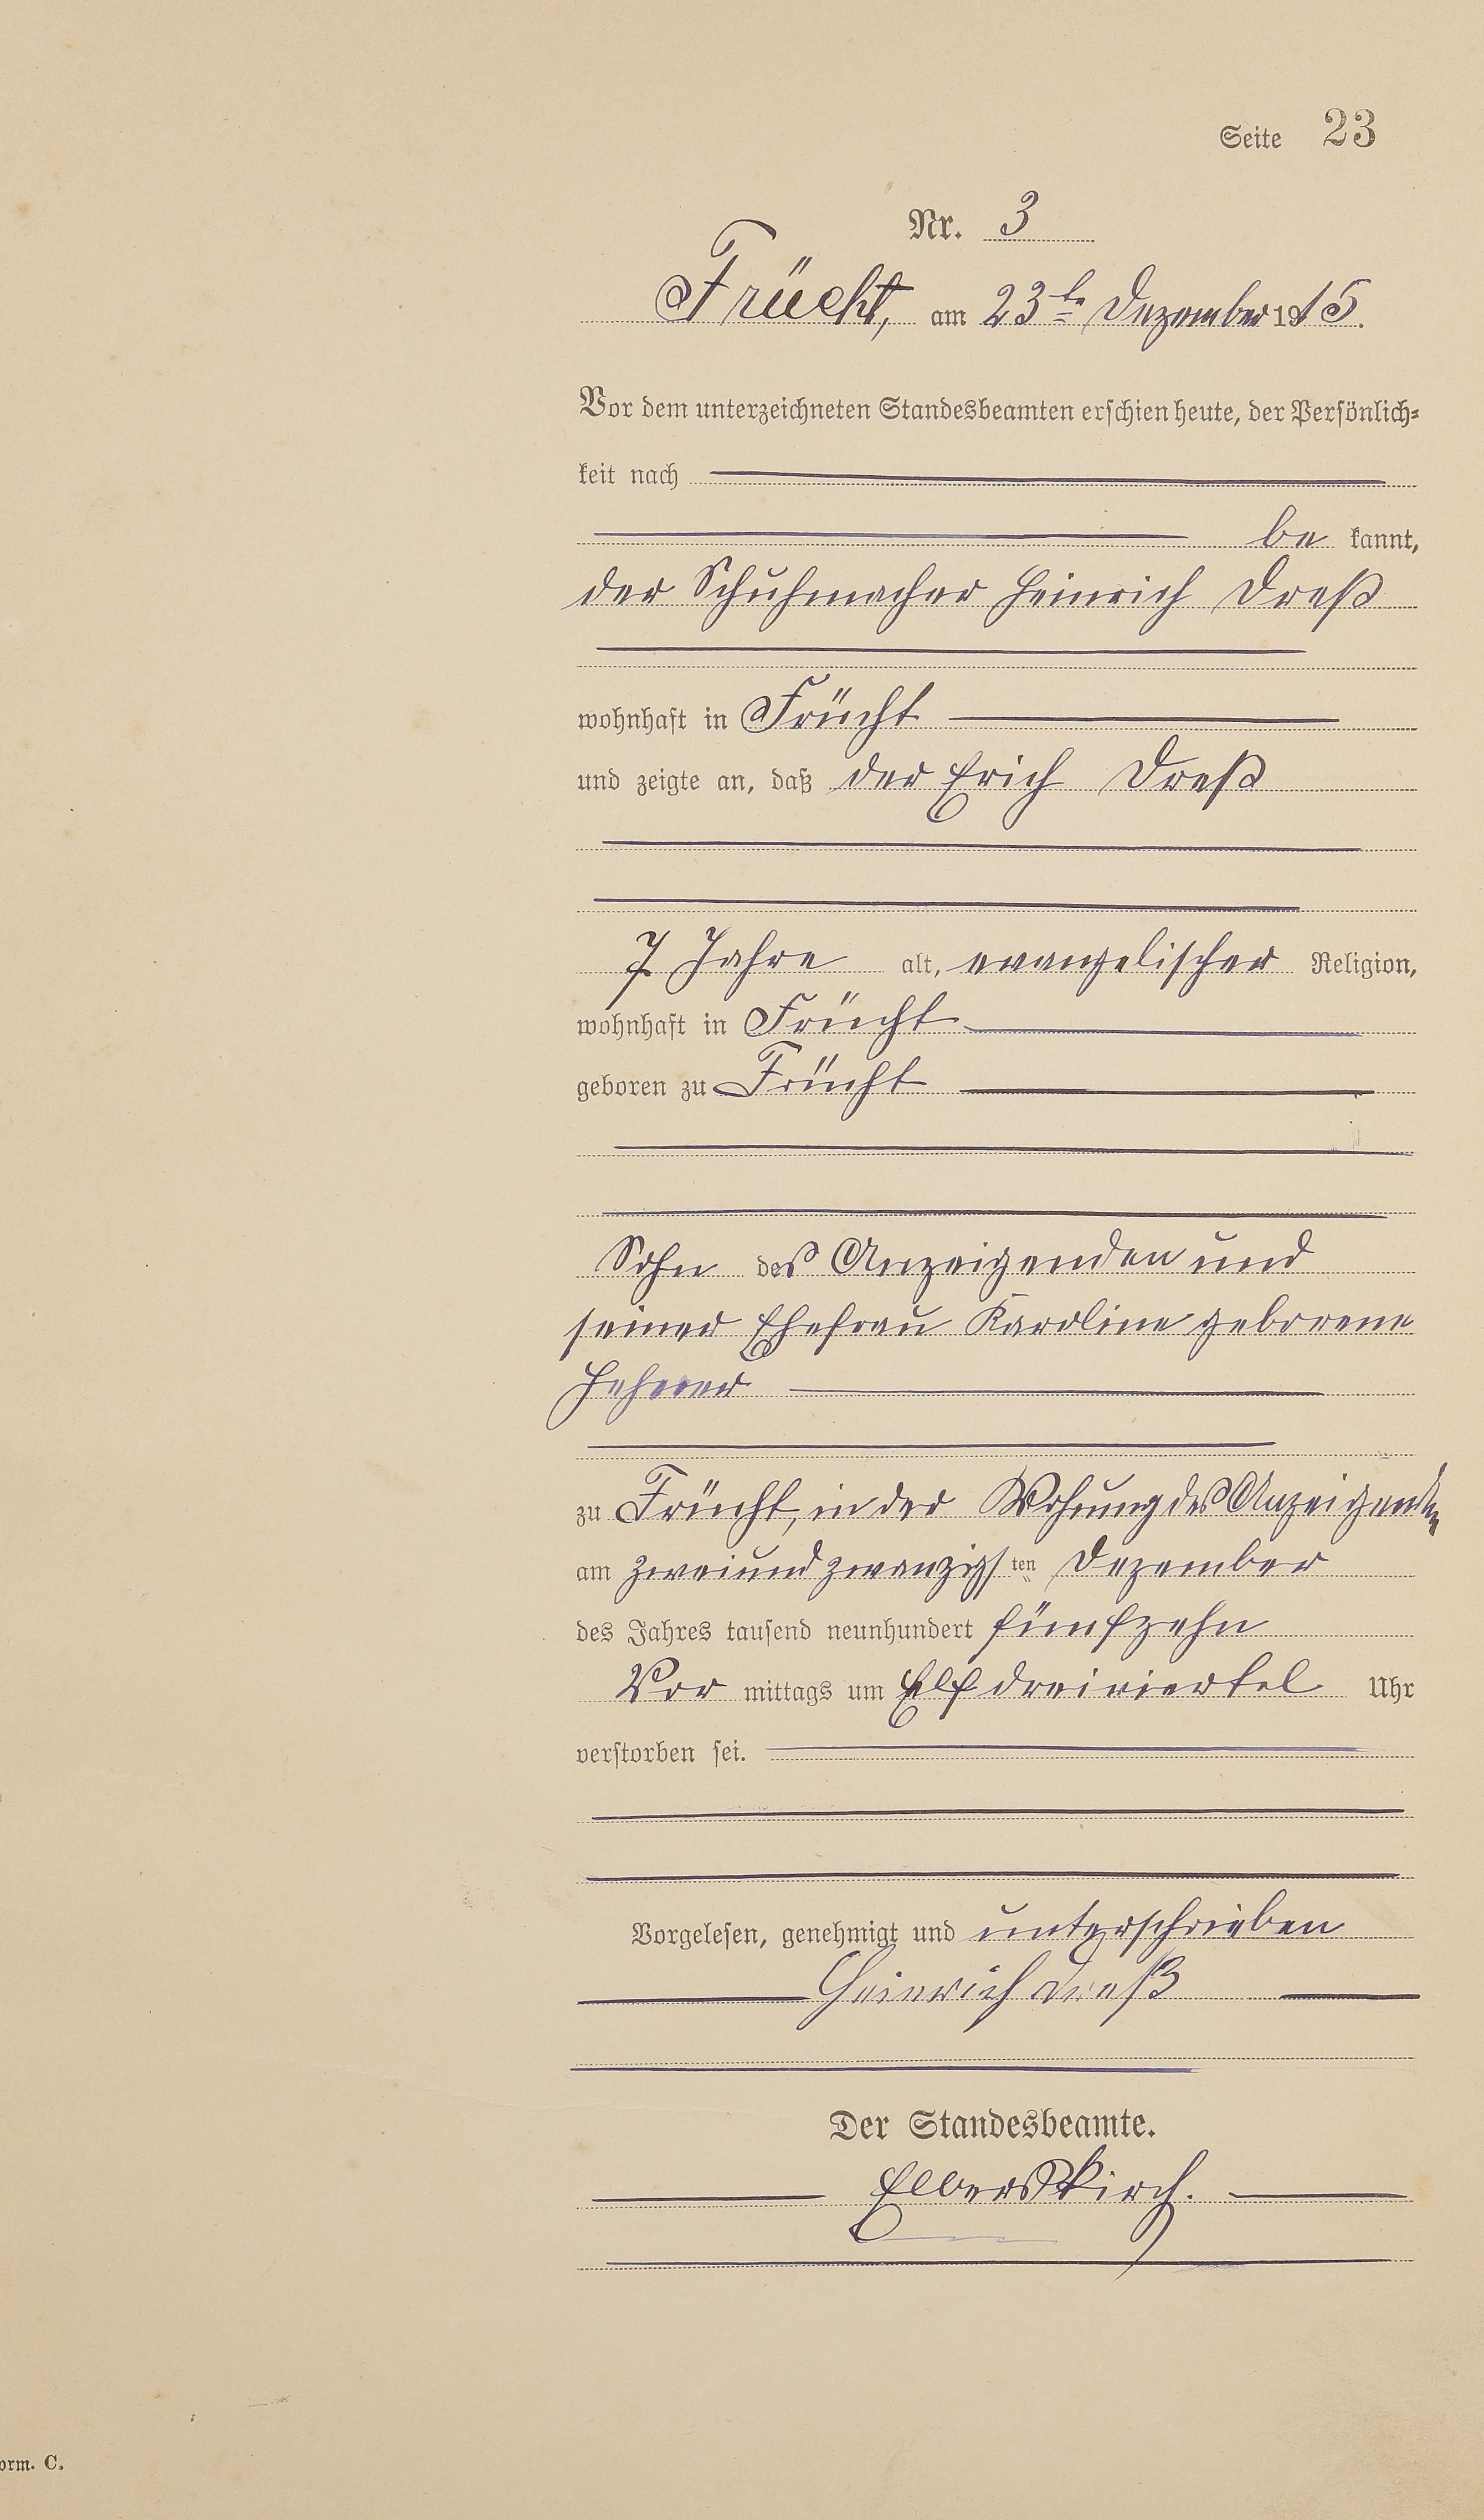 Seite 23
Nr. 3
Frücht, am 23te Dezember 1915.
Vor dem unterzeichneten Standesbeamten erschien heute, der Persönlich-
keit nach
be kannt,
der Schuhmacher Heinrich Dreß
wohnhaft in Frücht
und zeigte an, daß der Erich Dreß
7 Jahre alt, evangelischer Religion,
wohnhaft in Frücht
geboren zu Frücht
Sohn des Anzeigenden und
seiner Ehefrau Karoline geborene
zu Frücht, in der Wohung des Anzeigenden
am zweiundzwanzigsten Dezember
des Jahres tausend neunhundert fünfzehn
Vor mittags um Elf dreiviertel Uhr
verstorben sei.
Vorgelesen, genehmigt und unterschrieben
Heinrich Dreß
Der Standesbeamte.
Elberskirch.
orm. C.